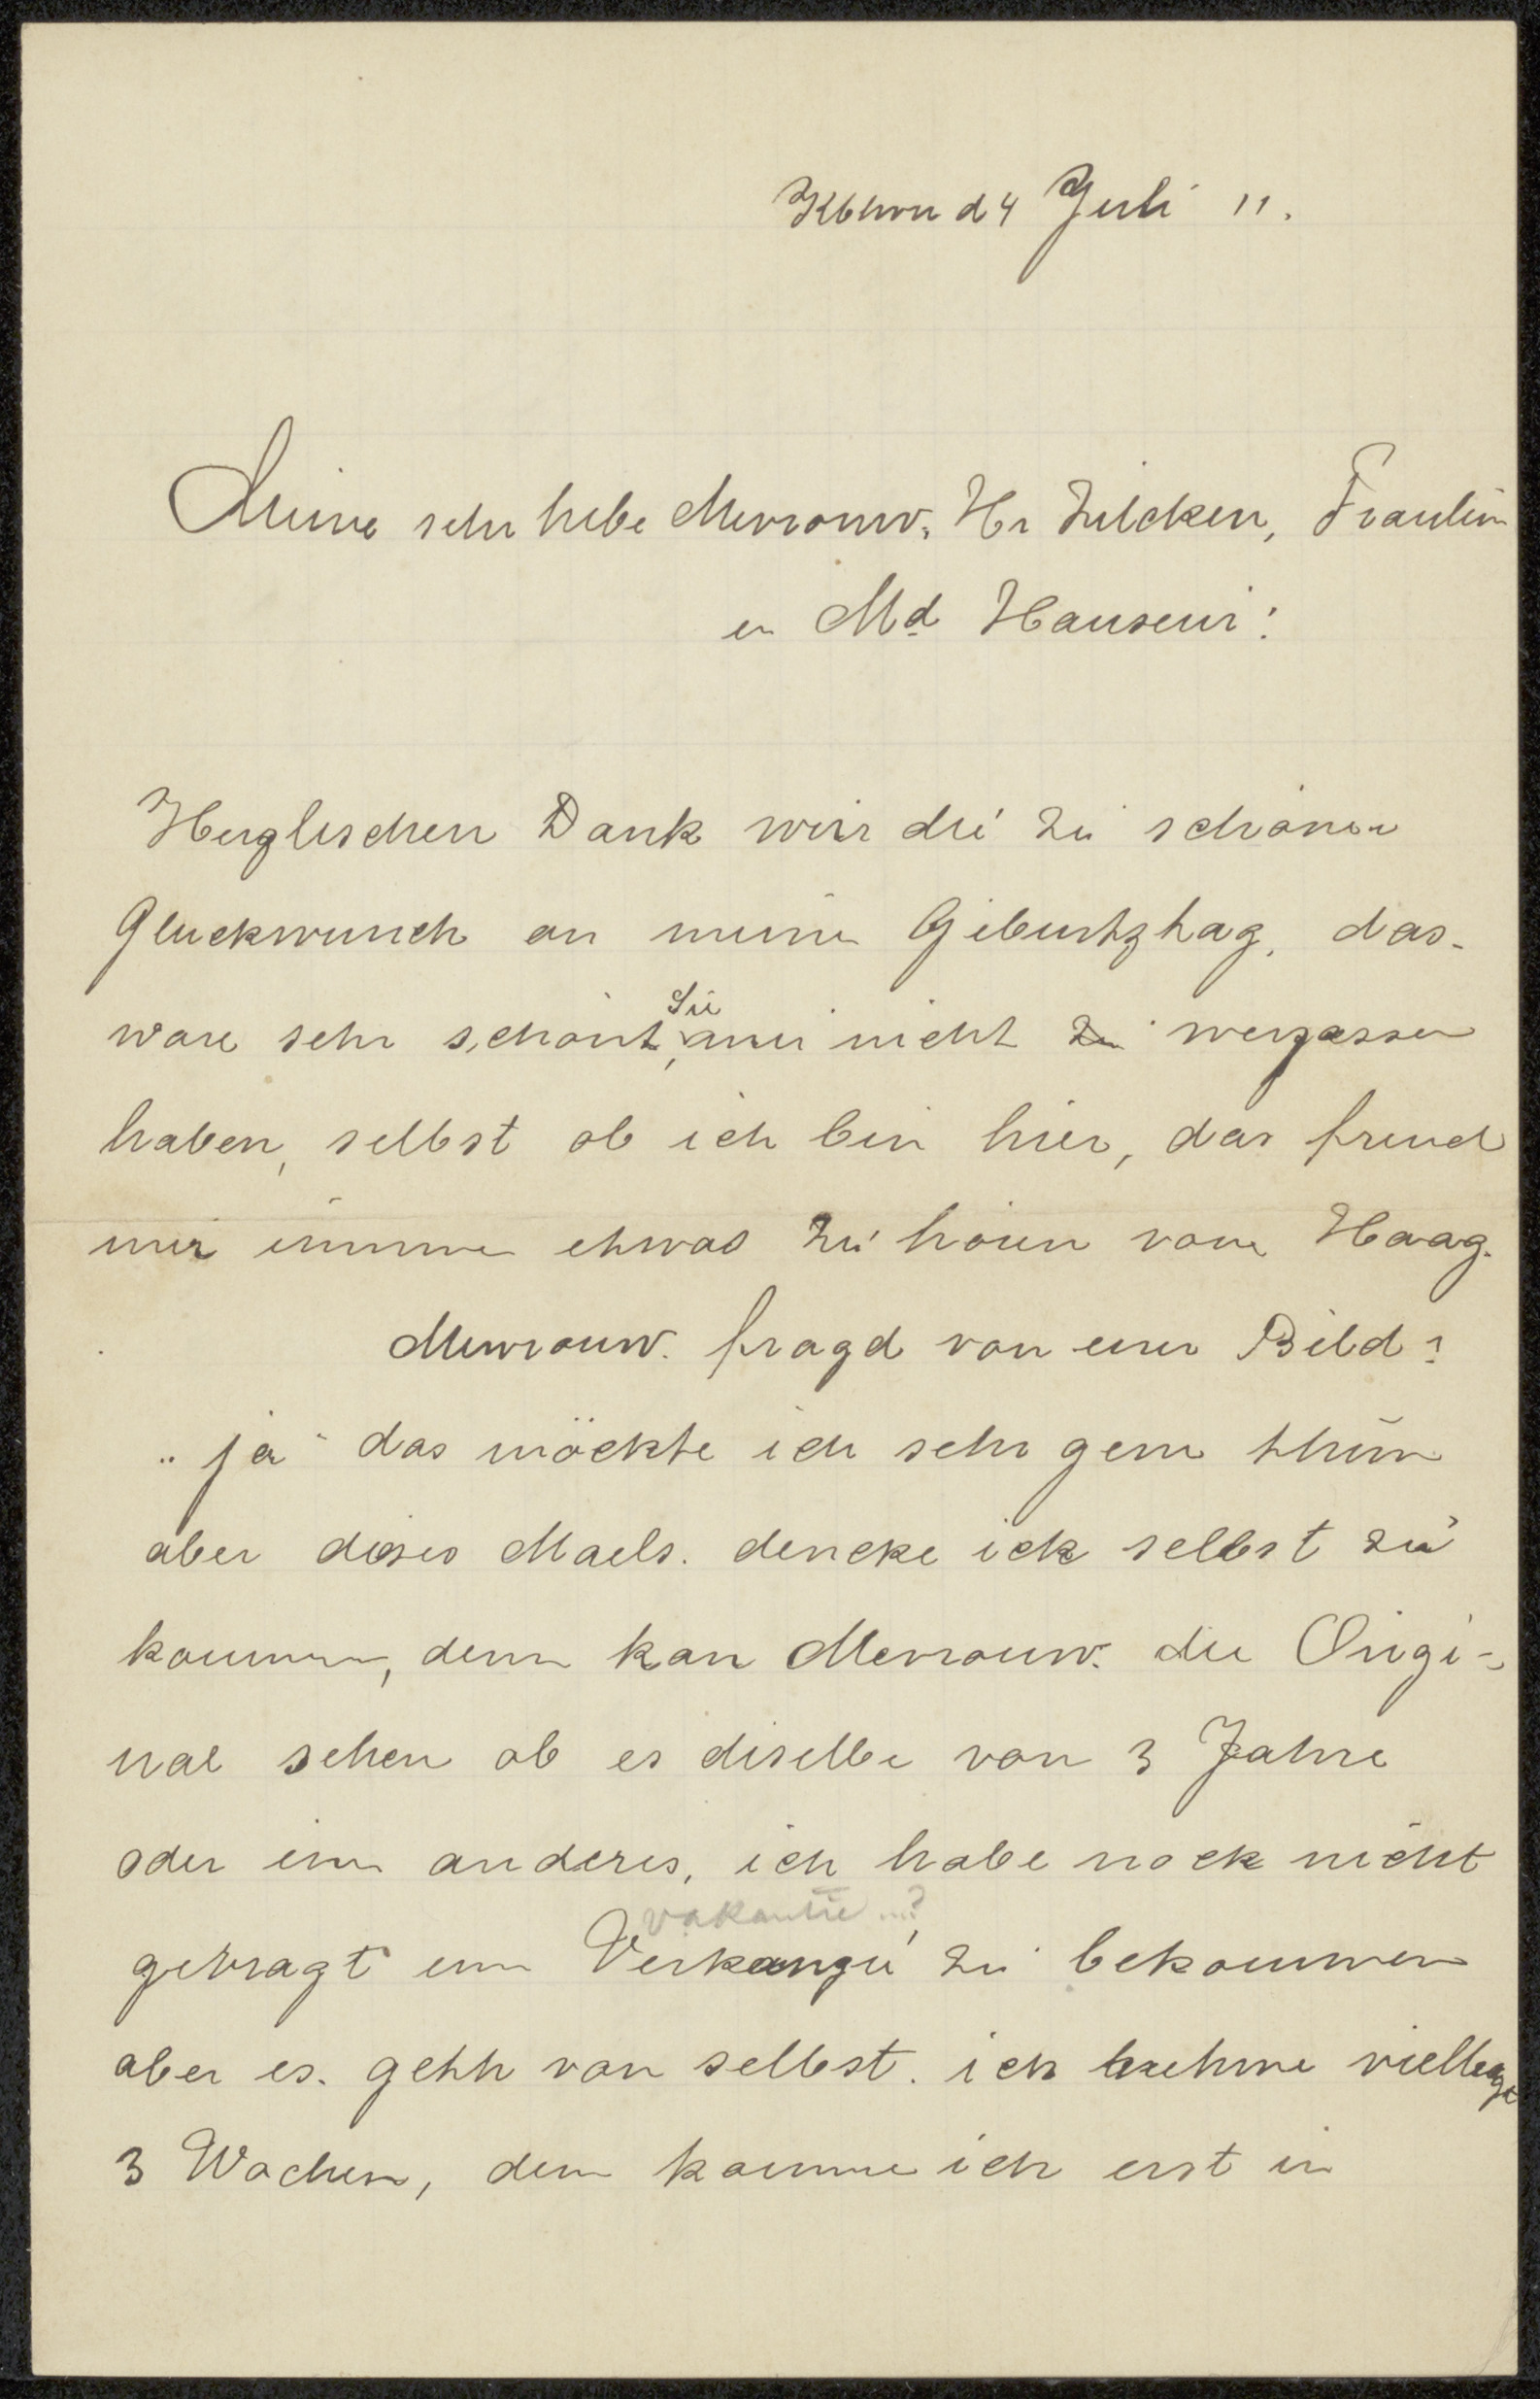 Kbhvn d 4 Juli 11.
Meine sehr liebe Mevrouw, Hr Zilcken, Fraulin
en Md Hauseur!
Herzlischen Dank vür die zu schönen
Gluckwunch an meine Geburtztag, das
ware sehr schönt, Sie mir nicht zu vergassen
haben, selbst ob ich bin hier, das freud
mir immer etwas zu hören vom Haag.
Mevrouw. fragd von einer Bild?
"ja" das möckte ich sehr gern thun
aber dises Maels. dencke ick selbst zu
kommen, denn kan Mevrouw. die Origi-
nal sehen ob es diselbe von 3 Jahre
oder ein anderes, ich habe nock nicht
vakantie ...?
gefragt um Verkangü zu bekommen
aber es. geht von selbst. ich nehme
3 Wochen, denn komme ich erst in